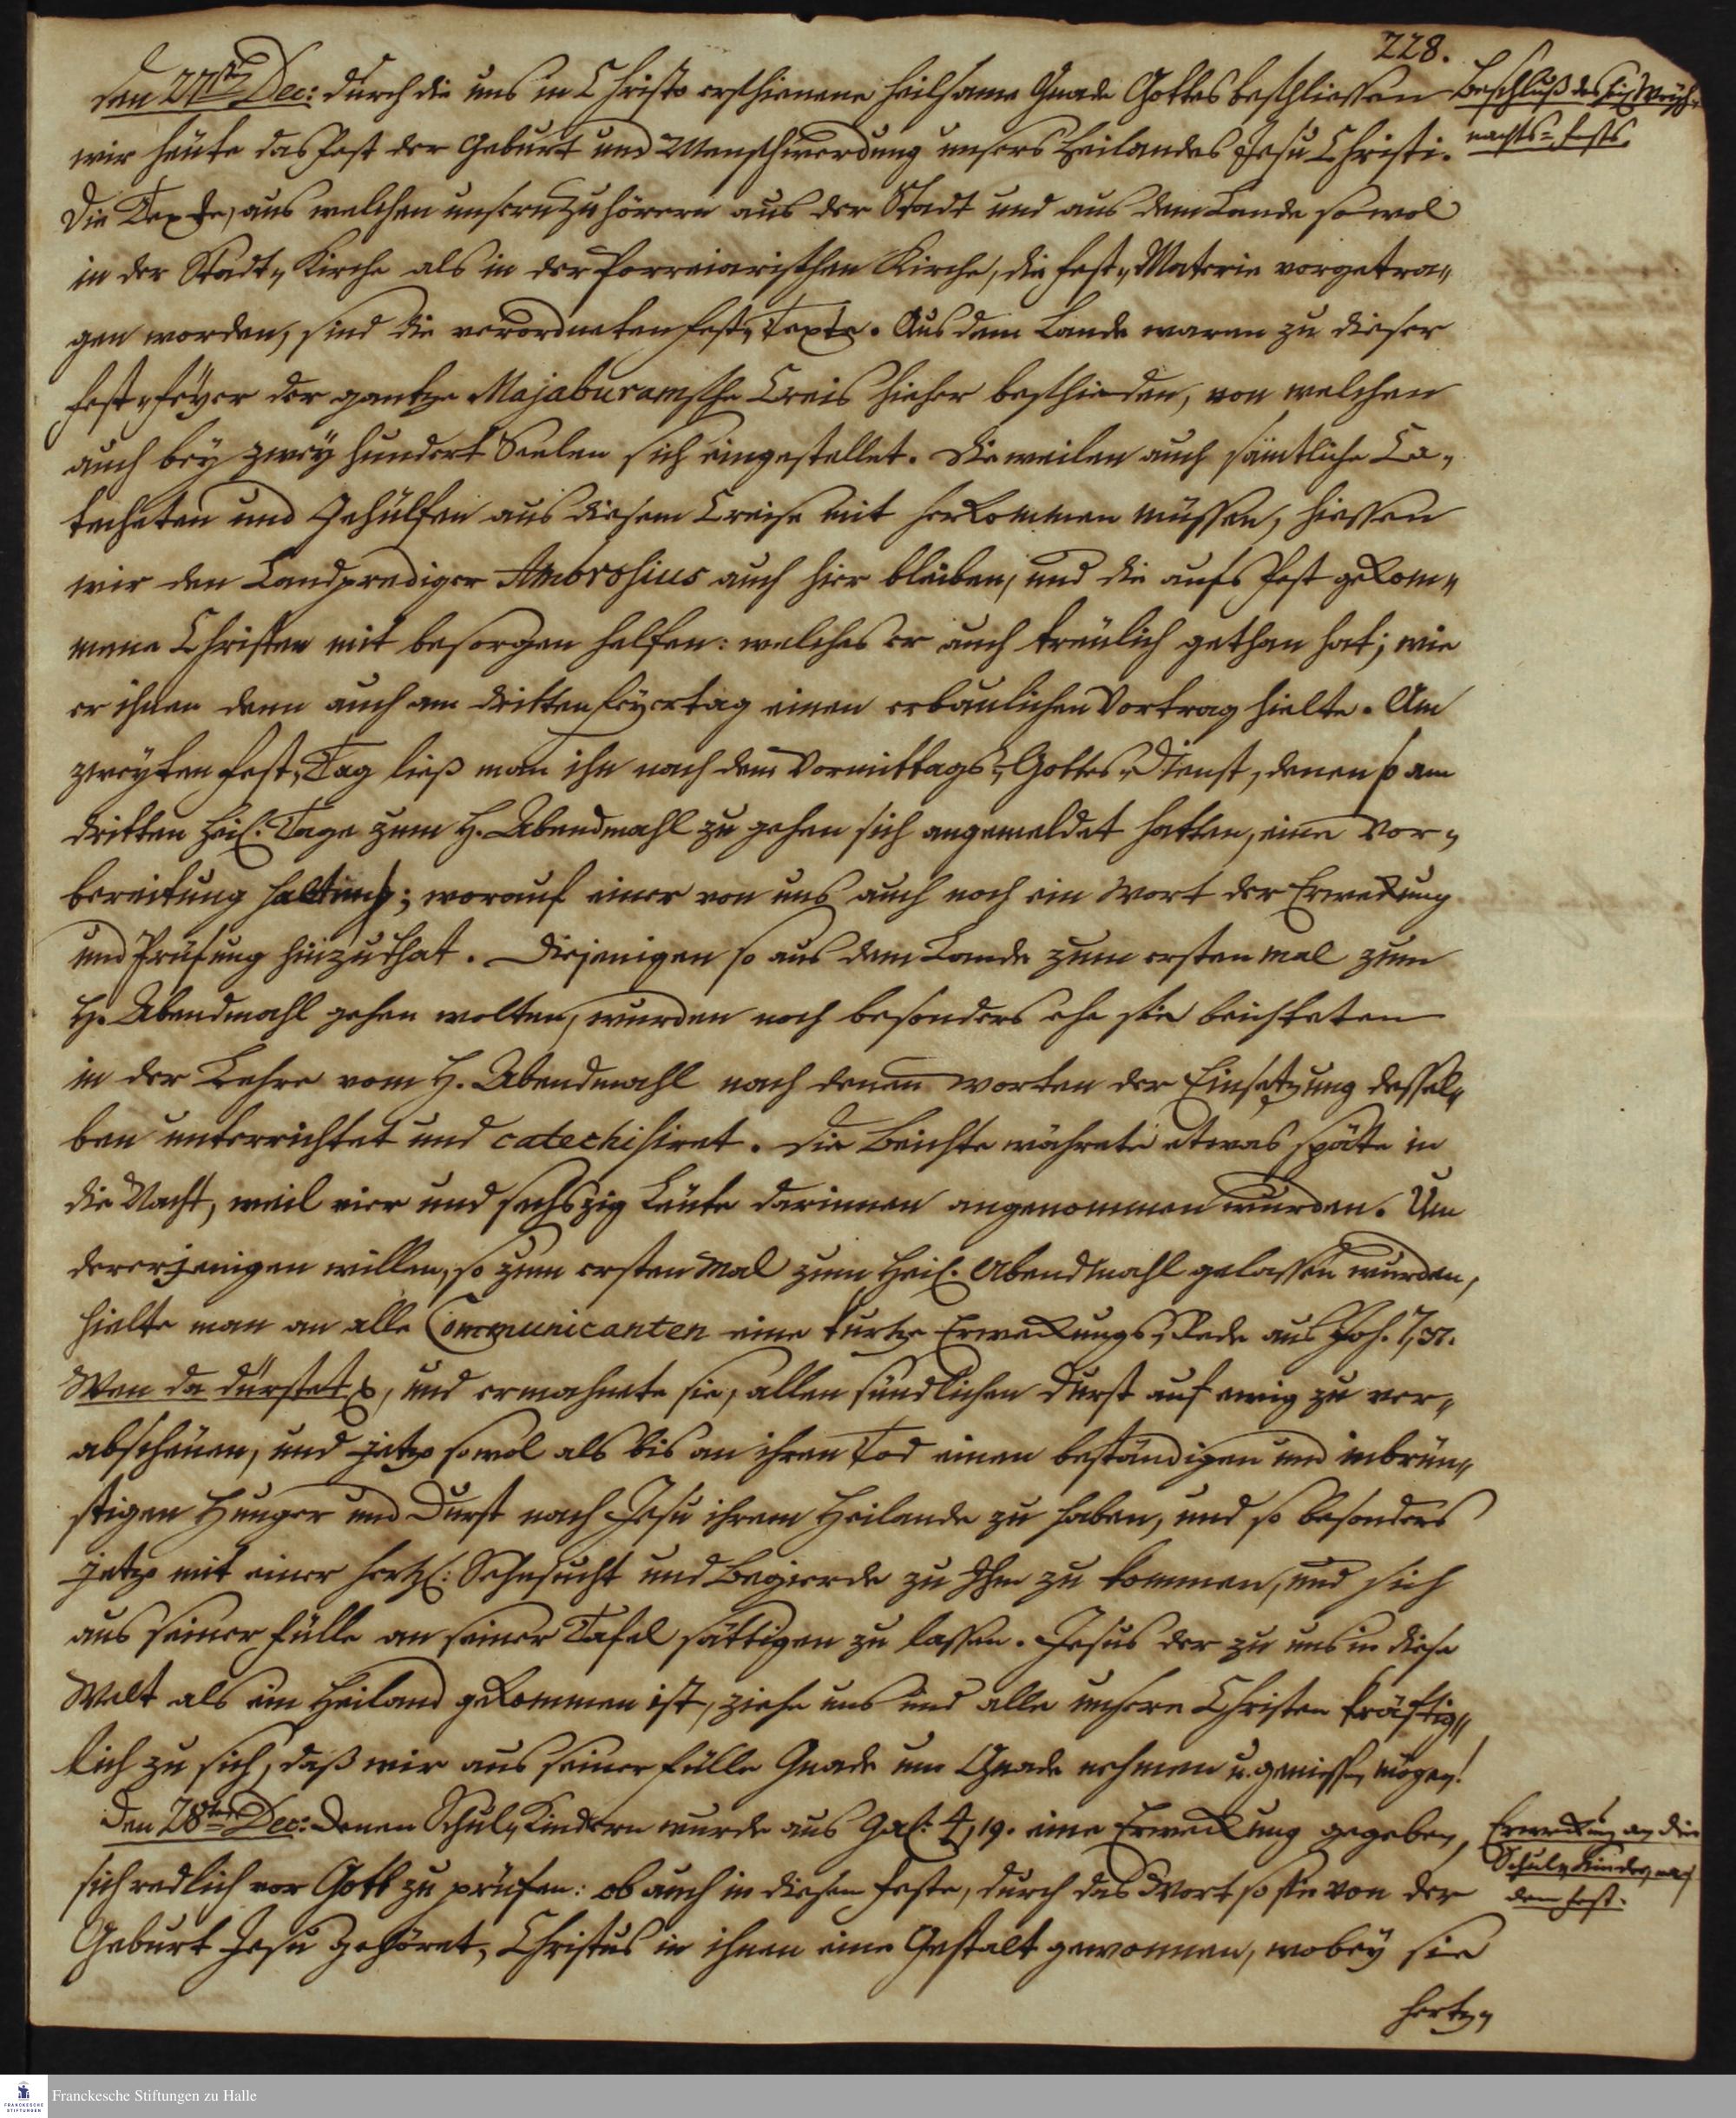 228.
den 27ten Dec: durch die uns in Christo erschienene heilsame Gnade Gottes beschliessen
Beschluß des
wir heüte das Fest der Geburt und Menschwerdung unsers Heilandes Jesu Christi.
nachts-Fests.
Die Texte, aus welchen unsern Zuhörern aus der Stadt und aus dem Lande sowol
in der Stadt-Kirche als in der Porreiarischen Kirche, die Fest-Materie vorgetra-
gen worden, sind die verordneten Fest-Texte. Aus dem Lande waren zu dieser
Fest-Feyer der gantze Majaburamsche Creis hieher beschieden, von welchen
auch bey zwey hundert Seelen sich eingestellet. Dieweilen auch sämtliche Ca-
techeten und Gehülfen aus diesem Creise mit herkommen müssen, hiessen
wir den Landprediger Ambrosius auch hier bleiben, und die aufs Fest gekom-
mene Christen mit besorgen helfen: welches er auch treülich gethan hat; wie
er ihnen denn auch am dritten Feyertag einen erbaulichen Vortrag hielte. Am
zweyten Fest-Tag ließ man ihn nach dem Vormittags-Gottes-Dienst, denen so am
dritten Heil. Tage zum H. Abendmahl zu gehen sich angemeldet hatten, eine Vor-
bereitung halten; worauf einer von uns auch noch ein Wort der Erweckung
und Prüfung hinzuthat. Diejenigen so aus dem Lande zum ersten mal zum
H. Abendmahl gehen wolten, wurden noch besonders ehe sie beichteten
in der Lehre vom H. Abendmahl nach denen Worten der Einsetzung dessel-
ben unterrichtet und catechisiret. Die Beichte währete etwas späte in
die Nacht, weil vier und sechszig Leüte darinnen angenommen wurden. Um
dererjenigen willen, so zum ersten Mal zum Heil. Abendmahl gelassen wurden,
hielte man an alle Communicanten eine kurtze Erweckungs-Rede aus Joh. 7,37.
Wen da dürstet p, und ermahnete sie, allen sündlichen Durst auf ewig zu ver-
abscheüen, und jetzo sowol als bis an ihren Tod einen beständigen und inbrün-
stigen Hunger und Durst nach Jesu ihrem Heilande zu haben, und so besonders
jetzo mit einer hertzl: Sehnsucht und Begierde zu Ihm zu kommen, und sich
aus seiner Fülle an seiner Tafel sättigen zu lassen. Jesus der zu uns in diese
Welt als ein Heiland gekommen ist, ziehe uns und alle unsere Christen kräftig-
lich zu sich, daß wir aus seiner Fülle Gnade um Gnade nehmen u. geniessen mögen!
Den 28ten Dec: Denen Schul-Kindern wurde aus Gal: 4,19. eine Erweckung gegeben,
Erweckung an die
sich redlich vor Gott zu prüfen: ob auch in diesem Feste, durch das Wort so sie von der
Schul-Kinder nach
dem Fest.
Geburt Jesu gehöret, Christus in ihnen eine Gestalt gewonnen, wobey sie
hertz-
Franckesche Stiftungen zu Halle
FRANCKESCHE
STIFTUNGEN